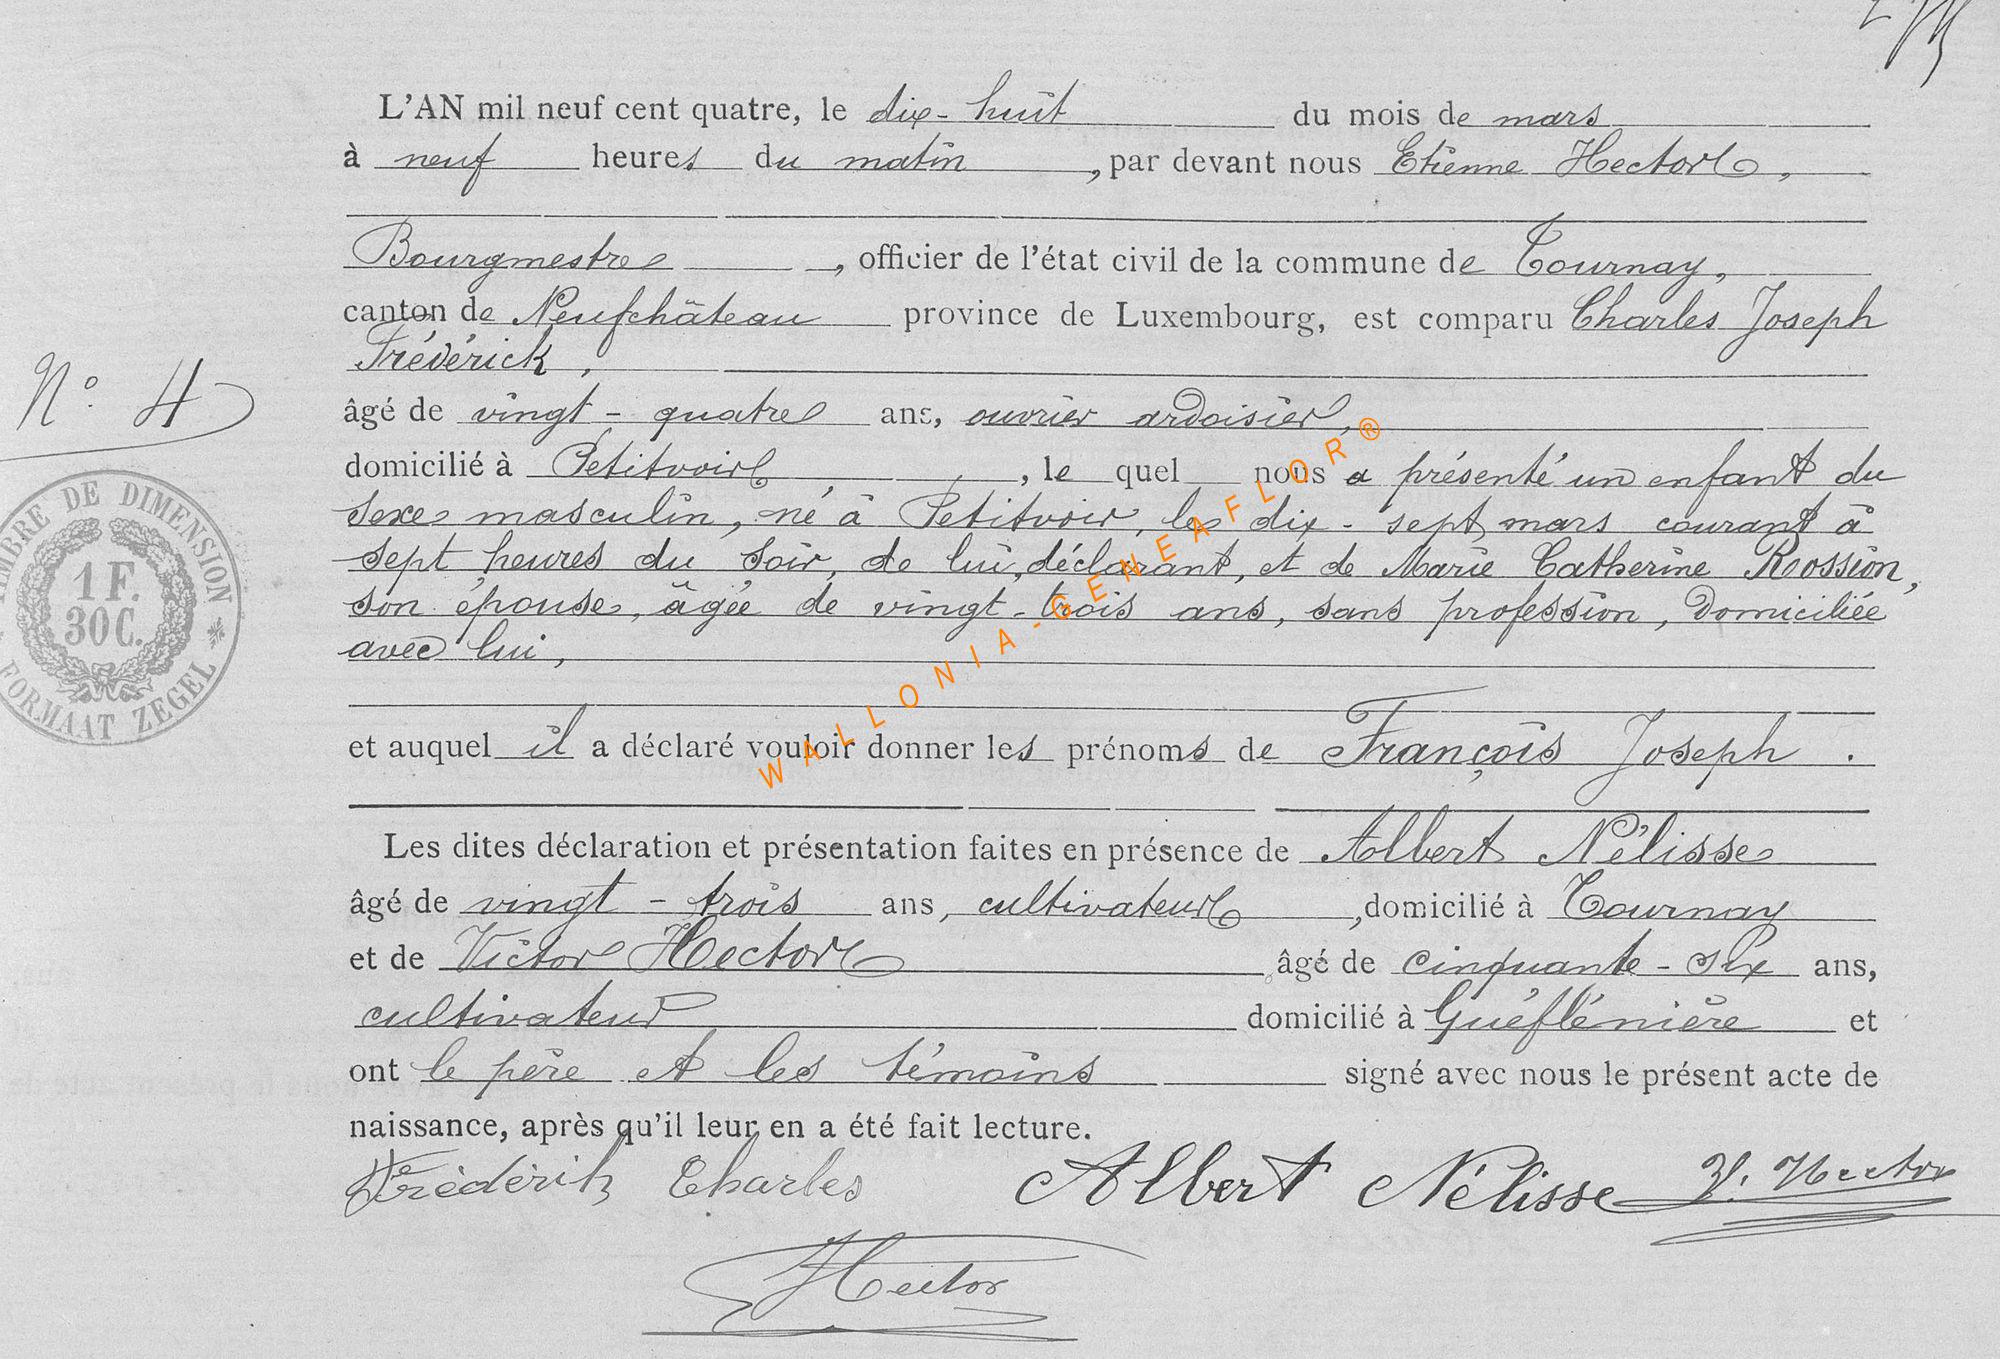 L'AN mil neuf cent quatre, le dix-huit du mois de mars
à neuf heures du matin, par devant nous Etienne Hector,
Bourgmestre, officier de l'état civil de la commune de Tournay,
canton de Neufchâteau province de Luxembourg, est comparu Charles Joseph
Frédérick,
N° 4
âgé de vingt-quatre ans, ouvrier ardoisier,
domicilié à Petitvoir, le quel nous a présenté un enfant du
sexe masculin, né à Petitvoir, le dix-sept mars courant à
sept heures du soir, de lui, déclarant, et de Marie Catherine Rossion,
son épouse, âgée de vingt-trois ans, sans profession, domiciliée
avec lui,
TIMBRE DE DIMENSION
1 F.
30 C.
FORMAAT ZEGEL
WALLONIA-GENEAFLOR®
et auquel il a déclaré vouloir donner les prénoms de François Joseph.
Les dites déclaration et présentation faites en présence de Albert Nélisse
âgé de vingt-trois ans, cultivateur, domicilié à Tournay
et de Victor Hector âgé de cinquante-six ans,
cultivateur domicilié à Gueflémière et
ont le père et les témoins signé avec nous le présent acte de
naissance, après qu'il leur en a été fait lecture.
Frédérik Charles Albert Nélisse V. Hector
Hector